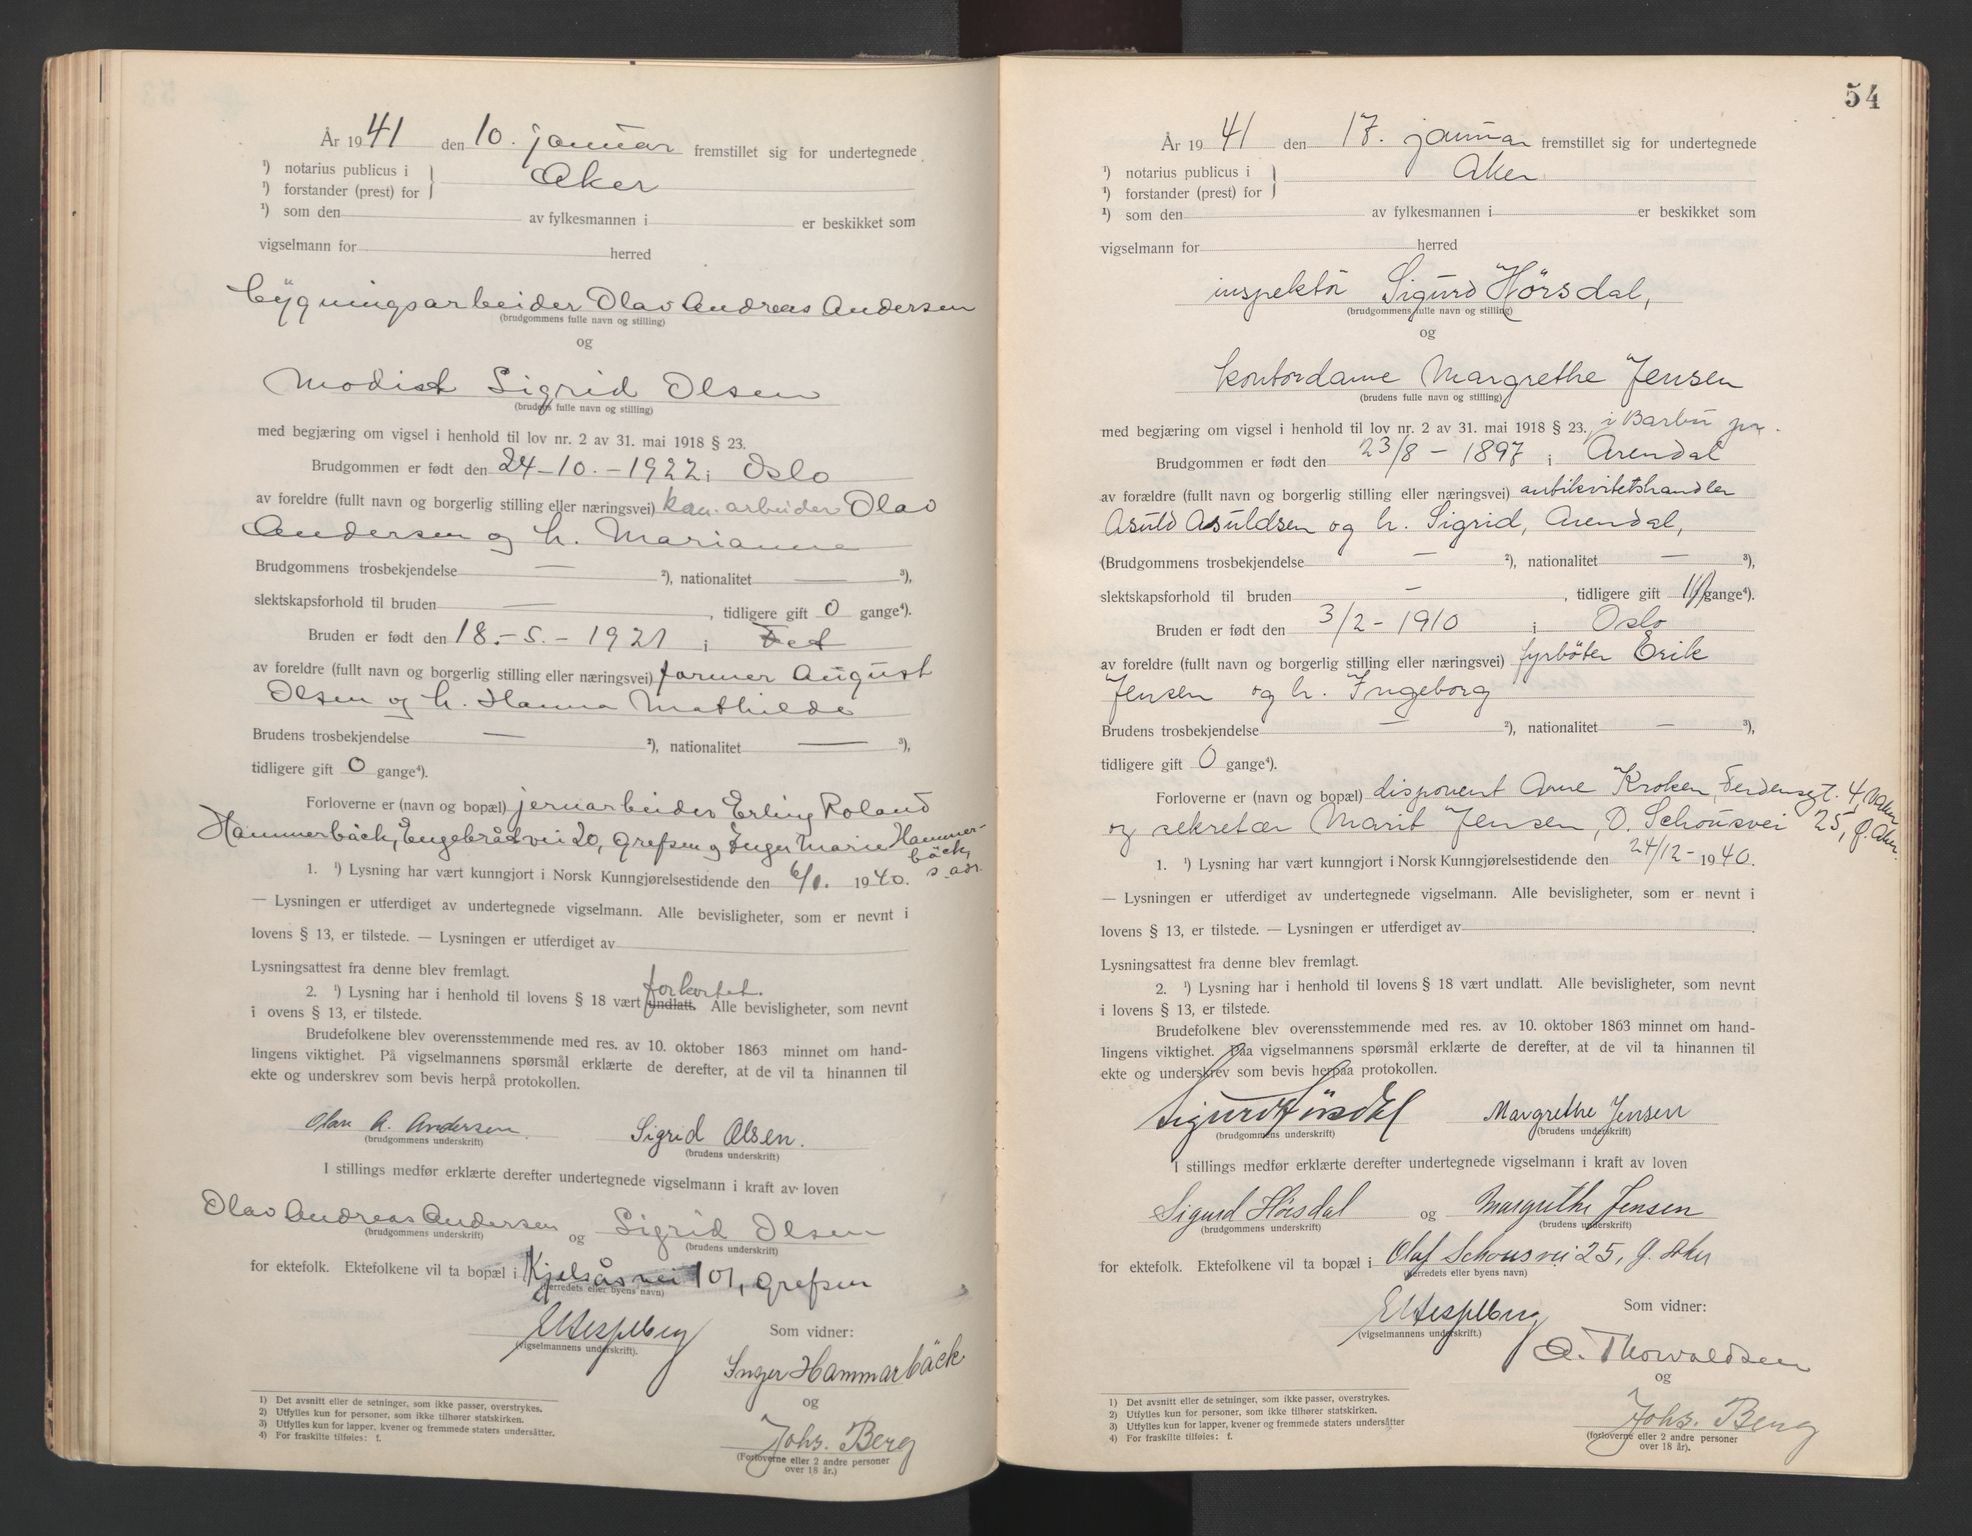 År 1941 den 10. januar fremstillet sig for undertegnede
¹) notarius publicus i
¹) forstander (prest) for } Aker
¹) som den av fylkesmannen i er beskikket som
vigselmann for herred
bygningsarbeider Olav Andreas Andersen
(brudgommens fulle navn og stilling)
og
Modist Sigrid Olsen
(brudens fulle navn og stilling)
med begjæring om vigsel i henhold til lov nr. 2 av 31. mai 1918 § 23.
Brudgommen er født den 24-10.-1922 i Oslo
av foreldre (fullt navn og borgerlig stilling eller næringsvei) arbeider Olav
Andersen og h. Marianne
Brudgommens trosbekjendelse — ²), nationalitet — ³),
slektskapsforhold til bruden — , tidligere gift 0 gange⁴).
Bruden er født den 18.-5.-1921 i Fet
av foreldre (fullt navn og borgerlig stilling eller næringsvei) former August
Olsen og h. Hanna Mathilde
Brudens trosbekjendelse — ²), nationalitet — ³),
tidligere gift 0 gange⁴).
Forloverne er (navn og bopæl) jernarbeider Erling Roland
Hammerbäck, Engebråtvei 20, Grefsen og Inger Marie Hammer-
bäck,
s. adr.
1. ¹) Lysning har vært kunngjort i Norsk Kunngjørelsestidende den 1940.
— Lysningen er utferdiget av undertegnede vigselmann. Alle bevisligheter, som er nevnt i
lovens § 13, er tilstede. — Lysningen er utferdiget av
Lysningsattest fra denne blev fremlagt.
forkortet.
2. ¹) Lysning har i henhold til lovens § 18 vært undlatt. Alle bevisligheter, som nevnt
i ovens § 13, er tilstede.
Brudefolkene blev overensstemmende med res. av 10. oktober 1863 minnet om hand-
lingens viktighet. På vigselmannens spørsmål erklærte de derefter, at de vil ta hinannen til
ekte og underskrev som bevis herpå protokollen.
Olav A. Andersen Sigrid Olsen.
(brudgommens underskrift) (brudens underskrift)
I stillings medfør erklærte derefter undertegnede vigselmann i kraft av loven
Olav Andreas Andersen og Sigrid Olsen
(brudgommens underskrift) (brudens underskrift)
for ektefolk. Ektefolkene vil ta bopæl i Kjelsåsvei 101, Grefsen
(herredets eller byens navn)
(vigselmannens underskrift).
Som vidner:
Inger Hammarbäck
og
Johs. Berg
(Forloverne eller 2 andre personer
over 18 år.)
1) Det avsnitt eller de setninger, som ikke passer, overstrykes.
2) Utfylles kun for personer, som ikke tilhører statskirken.
3) Utfylles kun for lapper, kvener og fremmede staters undersåtter.
4) For fraskilte tilføies: f.
54
År 1941 den 17. januar fremstillet sig for undertegnede
¹) notarius publicus i
¹) forstander (prest) for } Aker
¹) som den av fylkesmannen i er beskikket som
vigselmann for herred
inspektör Sigurd Hörsdal,
(brudgommens fulle navn og stilling)
og
kontordame Margrethe Jensen
(brudens fulle navn og stilling)
med begjæring om vigsel i henhold til lov nr. 2 av 31. mai 1918 § 23. i Barbu pr.
Brudgommen er født den 23/8 - 1897 i Arendal
av forældre (fullt navn og borgerlig stilling eller næringsvei) antikvitetshandler
Asuld Asuldsen og h. Sigrid, Arendal,
(Brudgommens trosbekjendelse — ²), nationalitet — ³),
slektskapsforhold til bruden — , tidligere gift gange⁴).
Bruden er født den 3/2 - 1910 i Oslo
av foreldre (fullt navn og borgerlig stilling eller næringsvei) fyrböter Erik
Jensen og h. Ingeborg
Brudens trosbekjendelse — ²), nationalitet — ³),
tidligere gift 0 gange⁴).
Forloverne er (navn og bopæl) disponent Arne Kroken, 4, V. Aker
og sekretær Marit Jensen, O. Schousvei 25, Ø. Aker.
1. ¹) Lysning har vært kunngjort i Norsk Kunngjørelsestidende den 24/12 - 1940.
— Lysningen er utferdiget av undertegnede vigselmann. Alle bevisligheter, som er nevnt i
lovens § 13, er tilstede. — Lysningen er utferdiget av
Lysningsattest fra denne blev fremlagt.
2. ¹) Lysning har i henhold til lovens § 18 vært undlatt. Alle bevisligheter, som nevnt
i lovens § 13, er tilstede.
Brudefolkene blev overensstemmende med res. av 10. oktober 1863 minnet om hand-
lingens viktighet. Paa vigselmannens spørsmål erklærte de derefter, at de vil ta hinannen til
ekte og underskrev som bevis herpaa protokollen.
Sigurd Hörsdal Margrethe Jensen
(brudgommens underskrift) (brudens underskrift)
I stillings medfør erklærte derefter undertegnede vigselmann i kraft av loven
Sigurd Hörsdal og Margrethe Jensen
(brudgommens underskrift) (brudens underskrift)
for ektefolk. Ektefolkene vil ta bopæl i Olaf Schousvei 25, Ø. Aker
(herredets eller byens navn)
(vigselmannens underskrift.)
Som vidner:
O. Thorvaldsen
og
Johs. Berg
(forloverne eller 2 andre personer
over 18 år).
1) Det avsnitt eller de setninger, som ikke passer, overstrykes.
2) Utfylles kun for personer, som ikke tilhører statskirken.
3) Utfylles kun for lapper, kvener og fremmede staters undersåtter
4) For fraskilte tilføies: f.